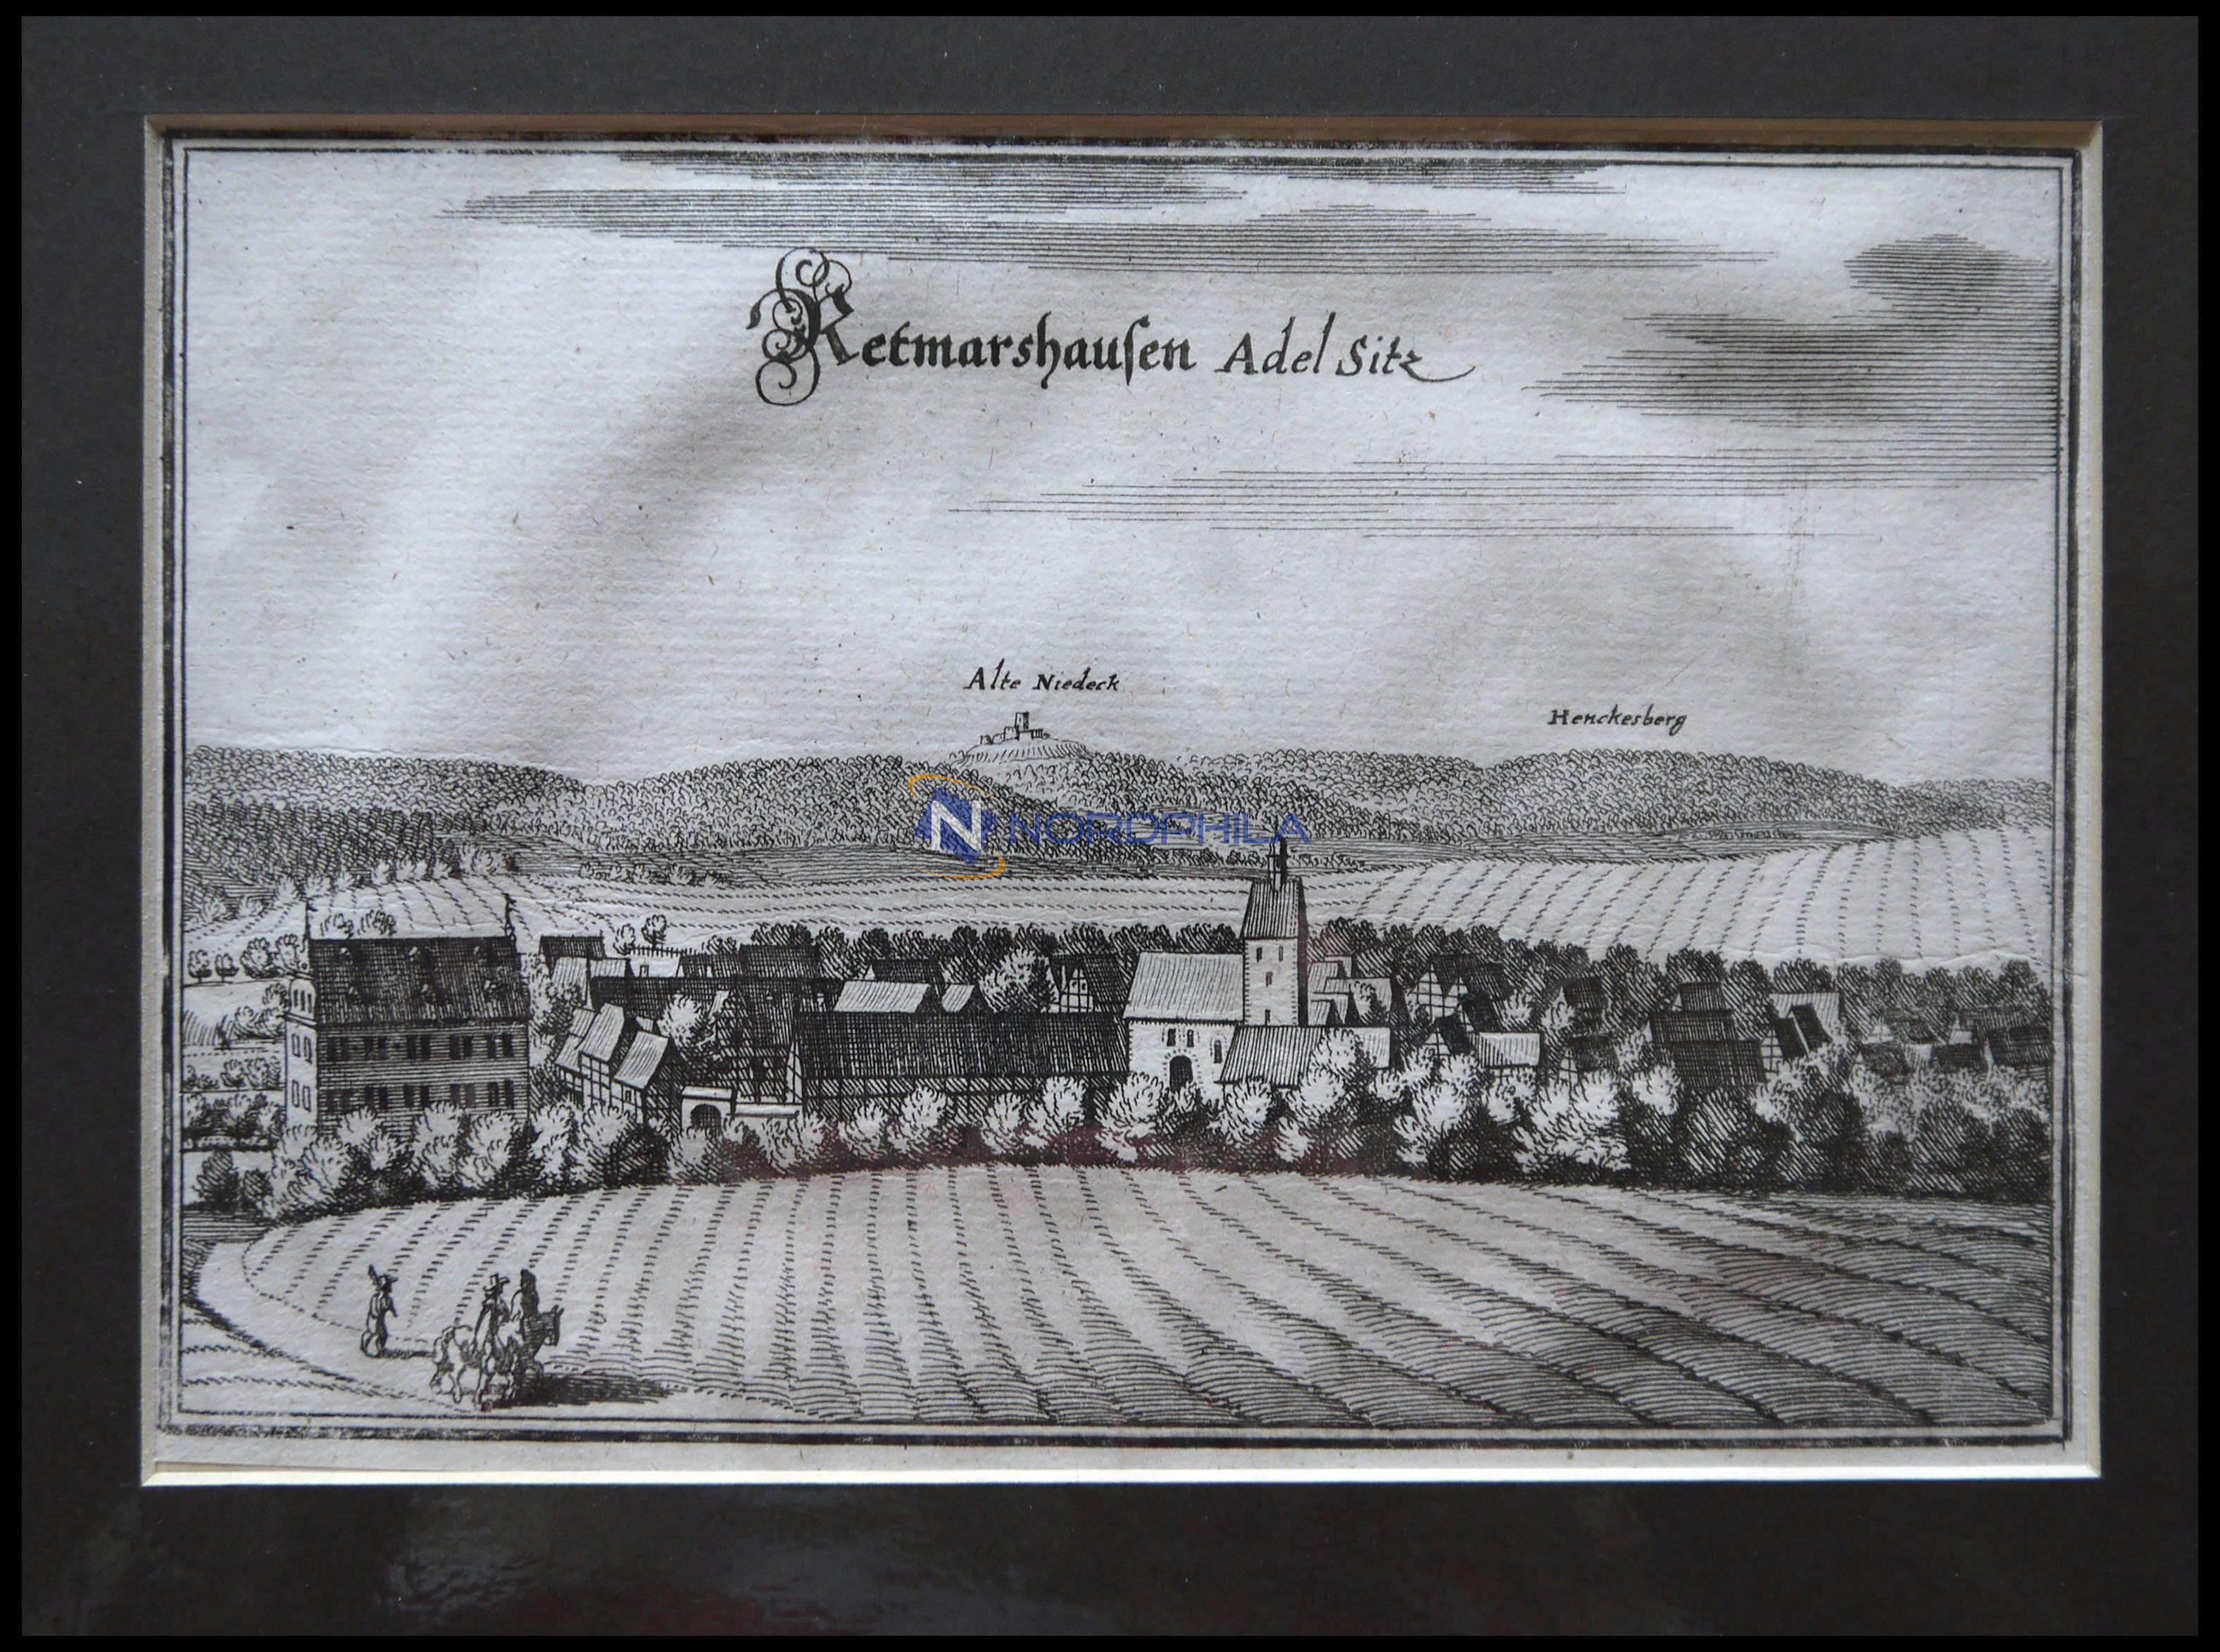 Retmarshauſen Adel Sitz
Alte Niedeck
Henckesberg
NORDPHILA